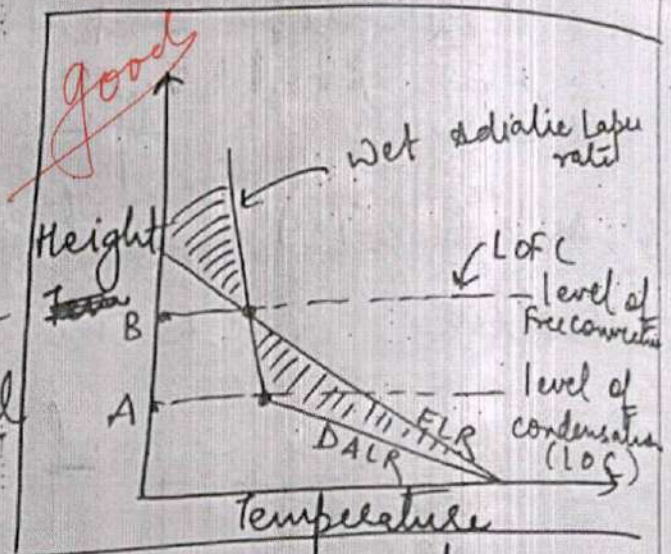 good
Wet Adialic Lapse
rate
Height
LOFC
level of
Free convection
B
level of
condensation
(LOC)
A
ELR
DALR
Temperature